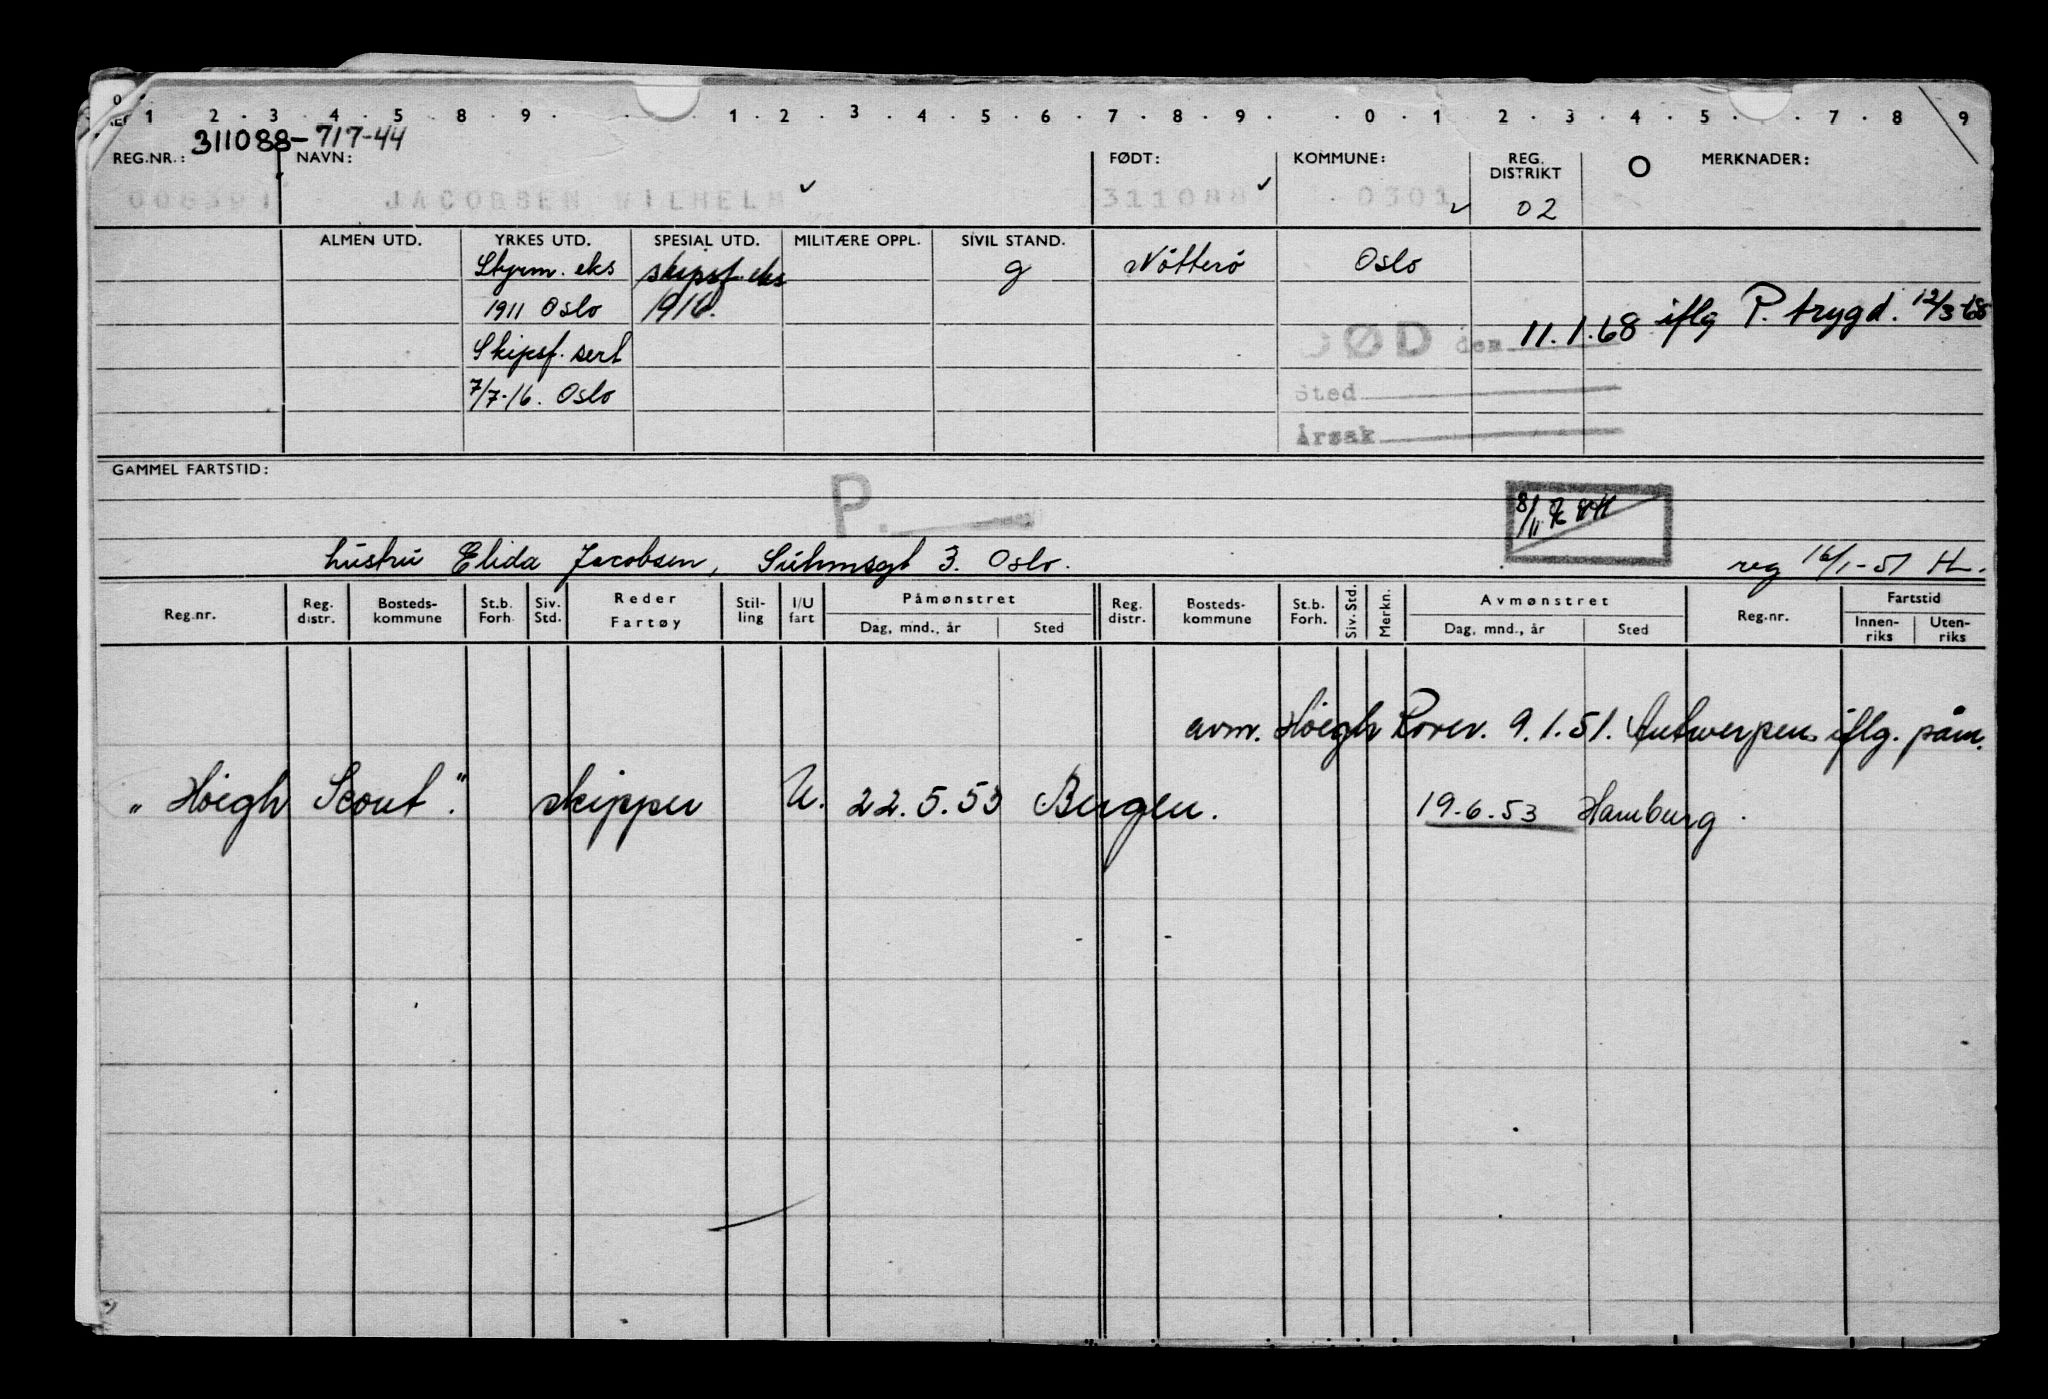 0 1 . 2 . 3 . 4 . 5 . 8 . 9 . . . 1 . 2 . 3 . 4 . 5 . 6 . 7 . 8 . 9 . . 0 . 1 . 2 . 3 . 4 . 5 . . 7 . 8 9
311088-717-44
REG.NR.: NAVN: FØDT: KOMMUNE: REG. DISTRIKT O MERKNADER:
JACOBSEN WILHELM 311088 0301 02
ALMEN UTD. YRKES UTD. SPESIAL UTD. MILITÆRE OPPL. SIVIL STAND.
Styrm. eks skipsf. eks g Nötterö Oslo
1911 Oslo 1916.
DØD den 11.1.68 iflg P. trygd. 12/3-68
Skipsf. sert
7/7-16. Oslo Sted
Årsak
GAMMEL FARTSTID:
P.
8/11
hustru Elida Jacobsen, Suhmsgt 3. Oslo. reg 16/1-51 H.
Reg.nr. Reg. distr. Bosteds-kommune St.b. Forh. Siv. Std. Reder Fartøy Stil-ling I/U fart Påmønstret Dag, mnd., år Sted Reg. distr. Bosteds-kommune St.b. Forh. Siv. Std. Merkn. Avmønstret Dag, mnd., år Sted Reg.nr. Fartstid Innen-riks Uten-riks
avm. Höegh Rover. 9.1.51. Antwerpen iflg. påm.
"Höegh Scout". skipper U. 22.5.53 Bergen. 19.6.53 Hamburg.